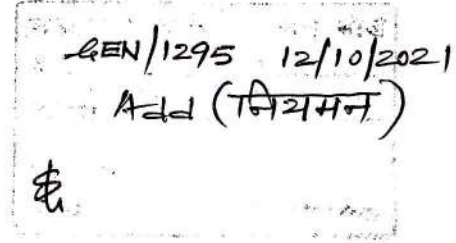 GEN/1295 12/10/2021
Add (नियमन)